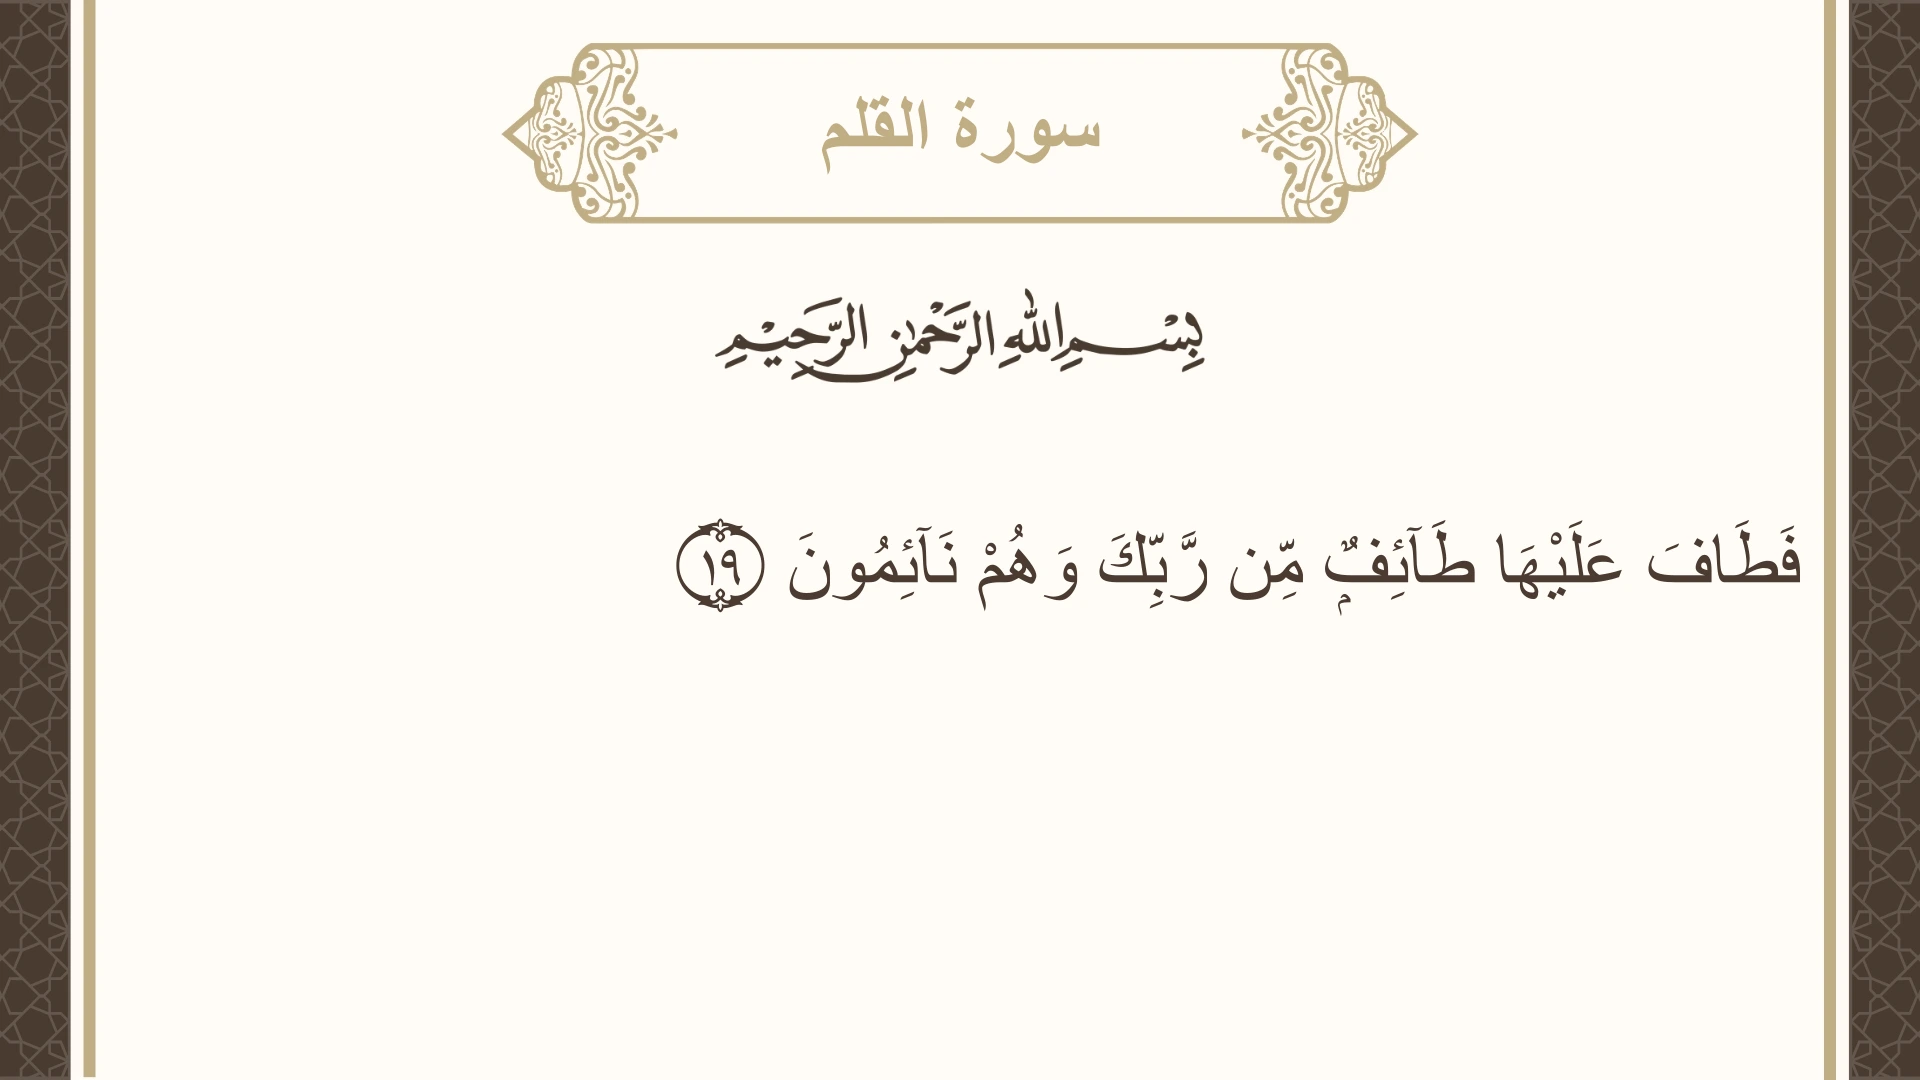 سورة القلم
بِسْمِ اللهِ الرَّحْمٰنِ الرَّحِيْمِ
فَطَافَ عَلَيْهَا طَآئِفٌۭ مِّن رَّبِّكَ وَهُمْ نَآئِمُونَ ١٩